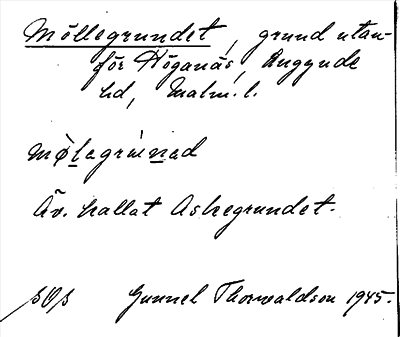 Möllegrundet, grund utan-
för Höganäs, Luggude
hd, Malm. l.
mø̱legrunad
Äv. kallat Askegrundet.
Gunnel Thorwaldson 1945.